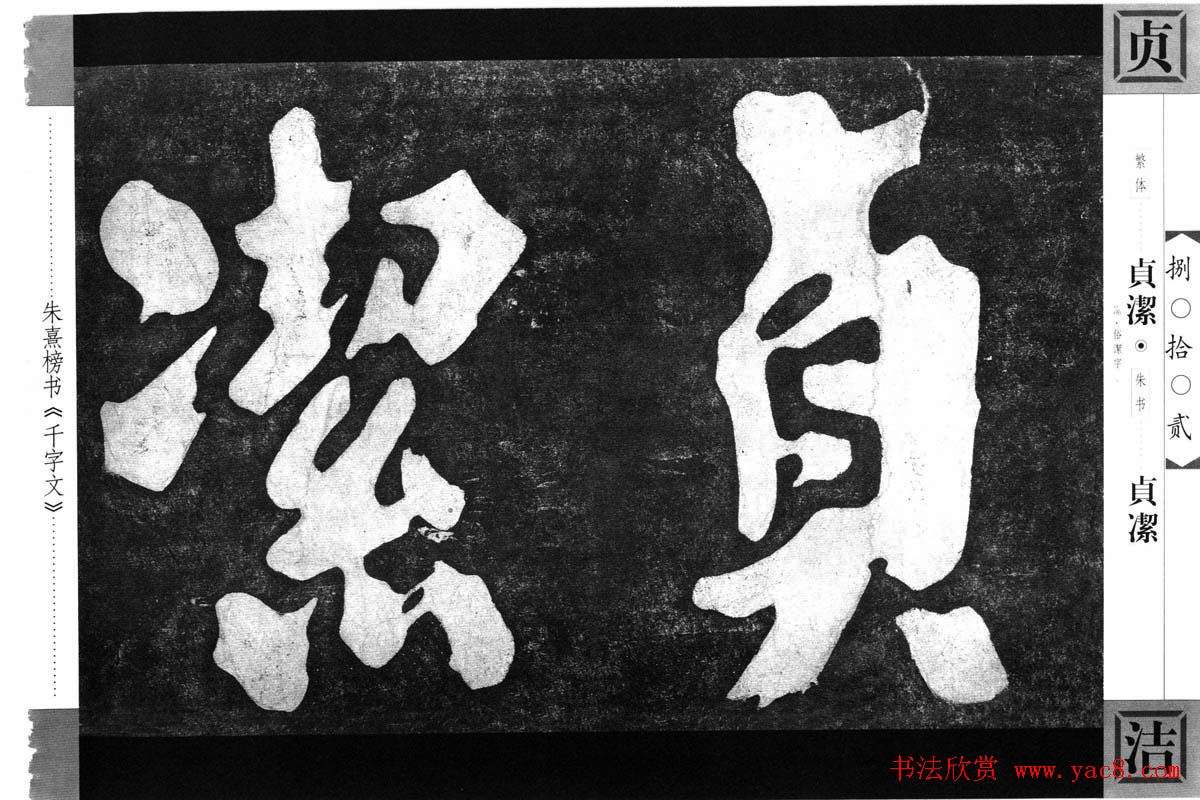 貞潔
贞
繁体
貞潔
俗潔字
朱书
貞凓
洁
捌〇拾〇贰
朱熹榜书《千字文》
书法欣赏 www.yac8.com